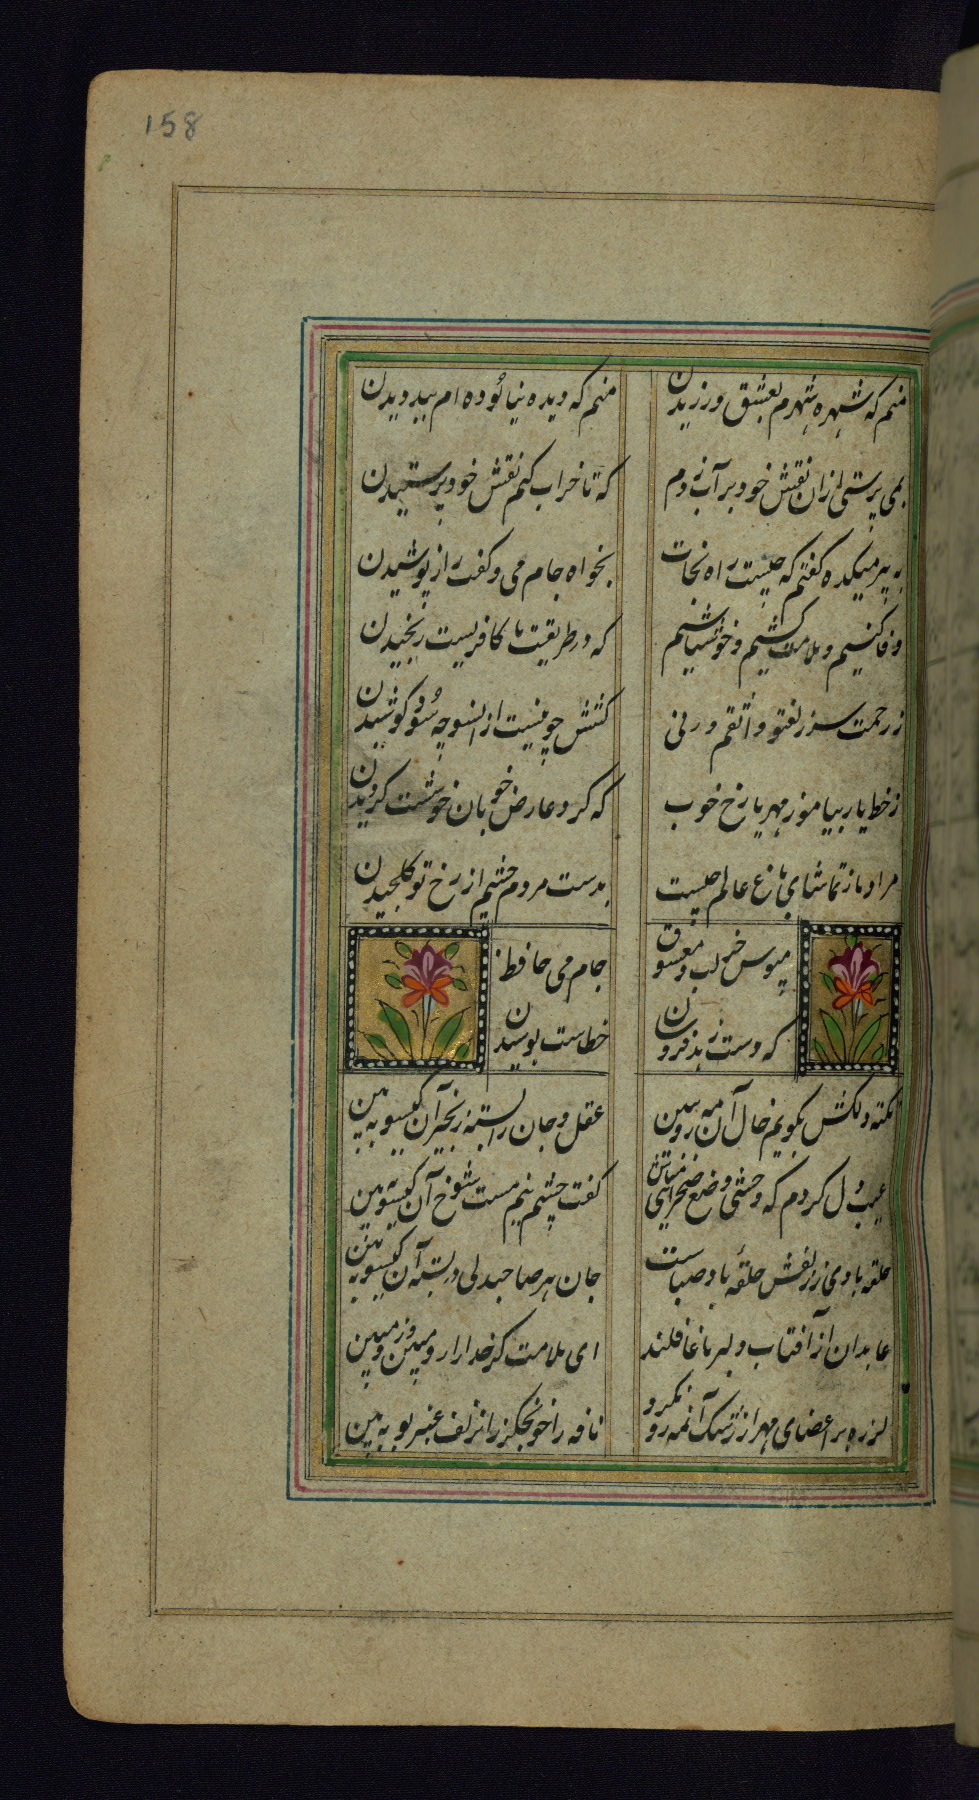 158
منم که شهره شهرم بعشق ورزیدن
منم که دیده نیالوده‌ام ببد دیدن
بمی پرستی از ان نقش خود بر آب زدم
که تا خراب کنم نقش خود پرستیدن
به پیر میکده گفتم که چیست راه نجات
بخواه جام می و گفت راز پوشیدن
وفا کنیم و ملامت کشیم و خوش باشیم
که در طریقت ما کافریست رنجیدن
ز رحمت سر زلف تو واثقم ورنی
کشش چو نیست از انسو چه سود کوشیدن
ز خط یار بیاموز مهر با رخ خوب
که گرد عارض خوبان خوشست گردیدن
مراد ما ز تماشای باغ عالم چیست
بدست مردم چشم از رخ تو گلچیدن
مبوس جز لب معشوق و
جام می حافظ
که دست زهد فروشان
خطاست بوسیدن
نکته دلکش بگویم خال آن مه رو ببین
عقل و جان را بسته زنجیر آن گیسو ببین
عیب دل کردم که وحشی وضع صحرایی مباش
گفت چشم نیم مست شوخ آن گیسو ببین
حلقه بادی ز زلفش حلقه باد صباست
جان هر صاحبدلی در بسته آن گیسو ببین
عابدان از آفتاب دلبر ما غافلند
ای ملامت گر خدا را رو مبین و رو ببین
لرزه بر اعضای مهر از رشک آن مه رو نگر
نافه را خون جگر زان زلف عنبر بو ببین